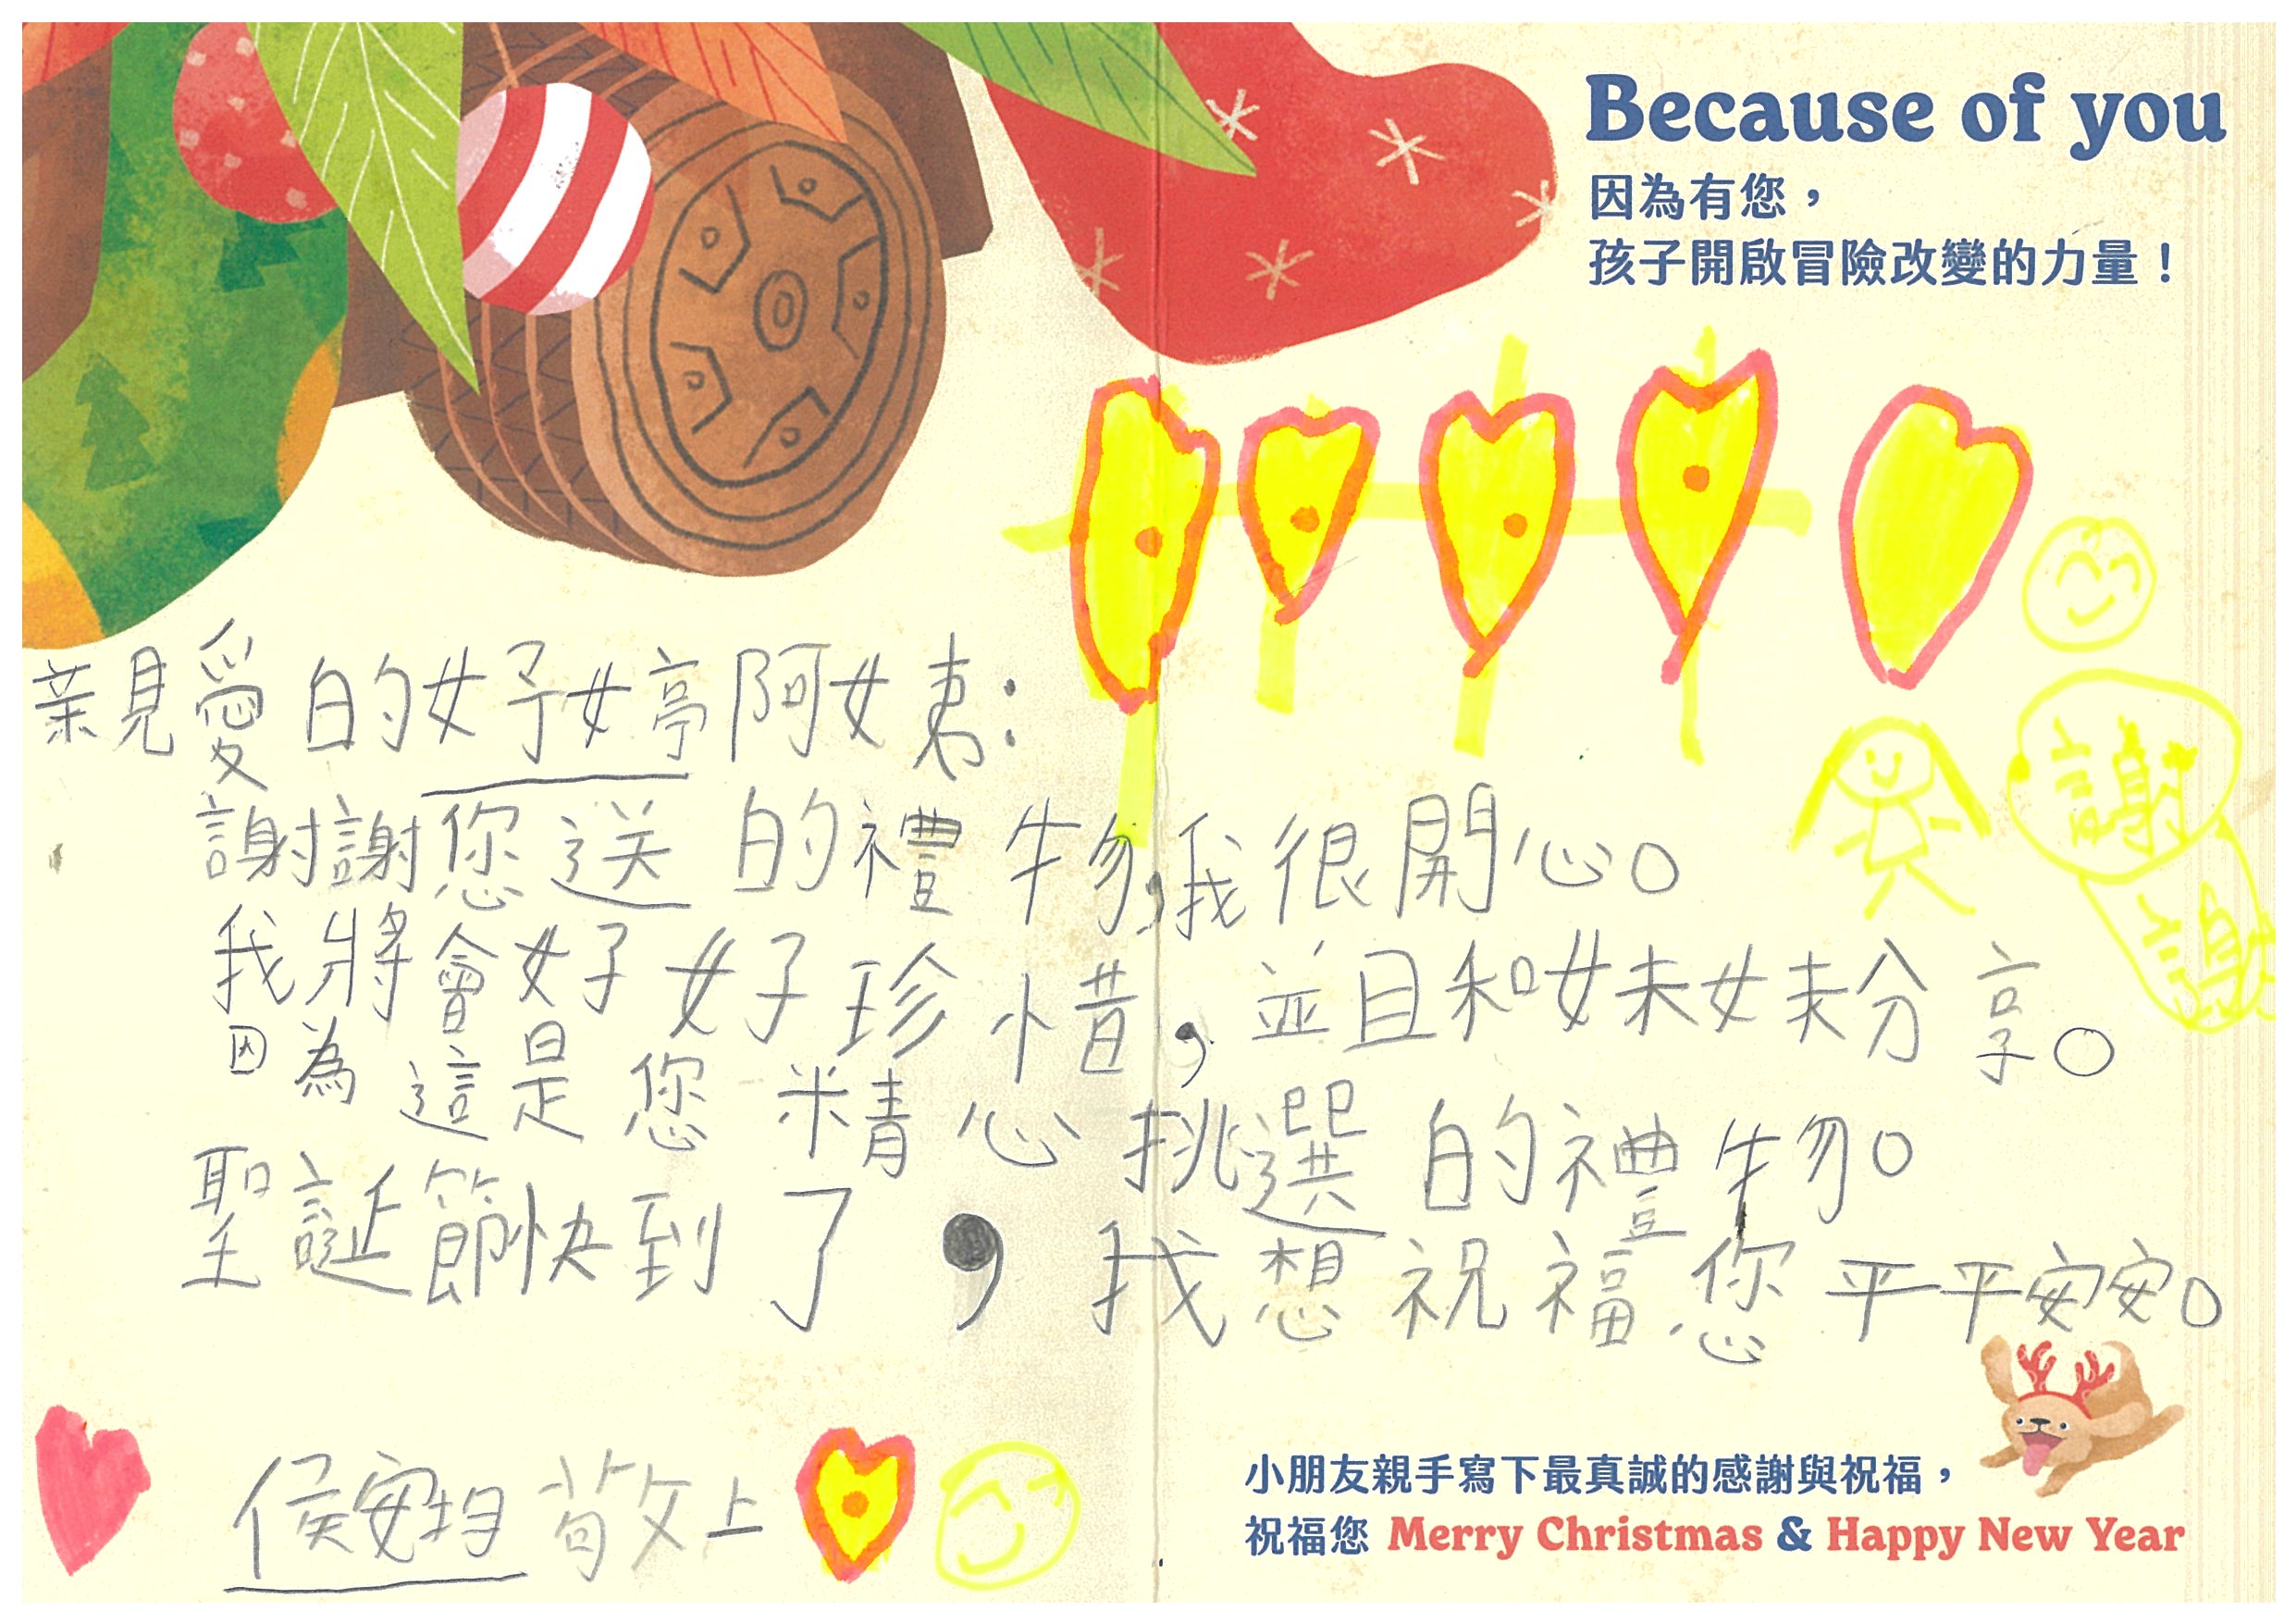 Because of you
因為有您，
孩子開啟冒險改變的力量！
親愛的妤婷阿姨：
謝謝您送的禮物，我很開心。
我將會好好珍惜，並且和妹妹分享。
因為這是您精心挑選的禮物。
聖誕節快到了，我想祝福您平平安安。
謝
謝
侯安均 敬上
小朋友親手寫下最真誠的感謝與祝福，
祝福您 Merry Christmas & Happy New Year